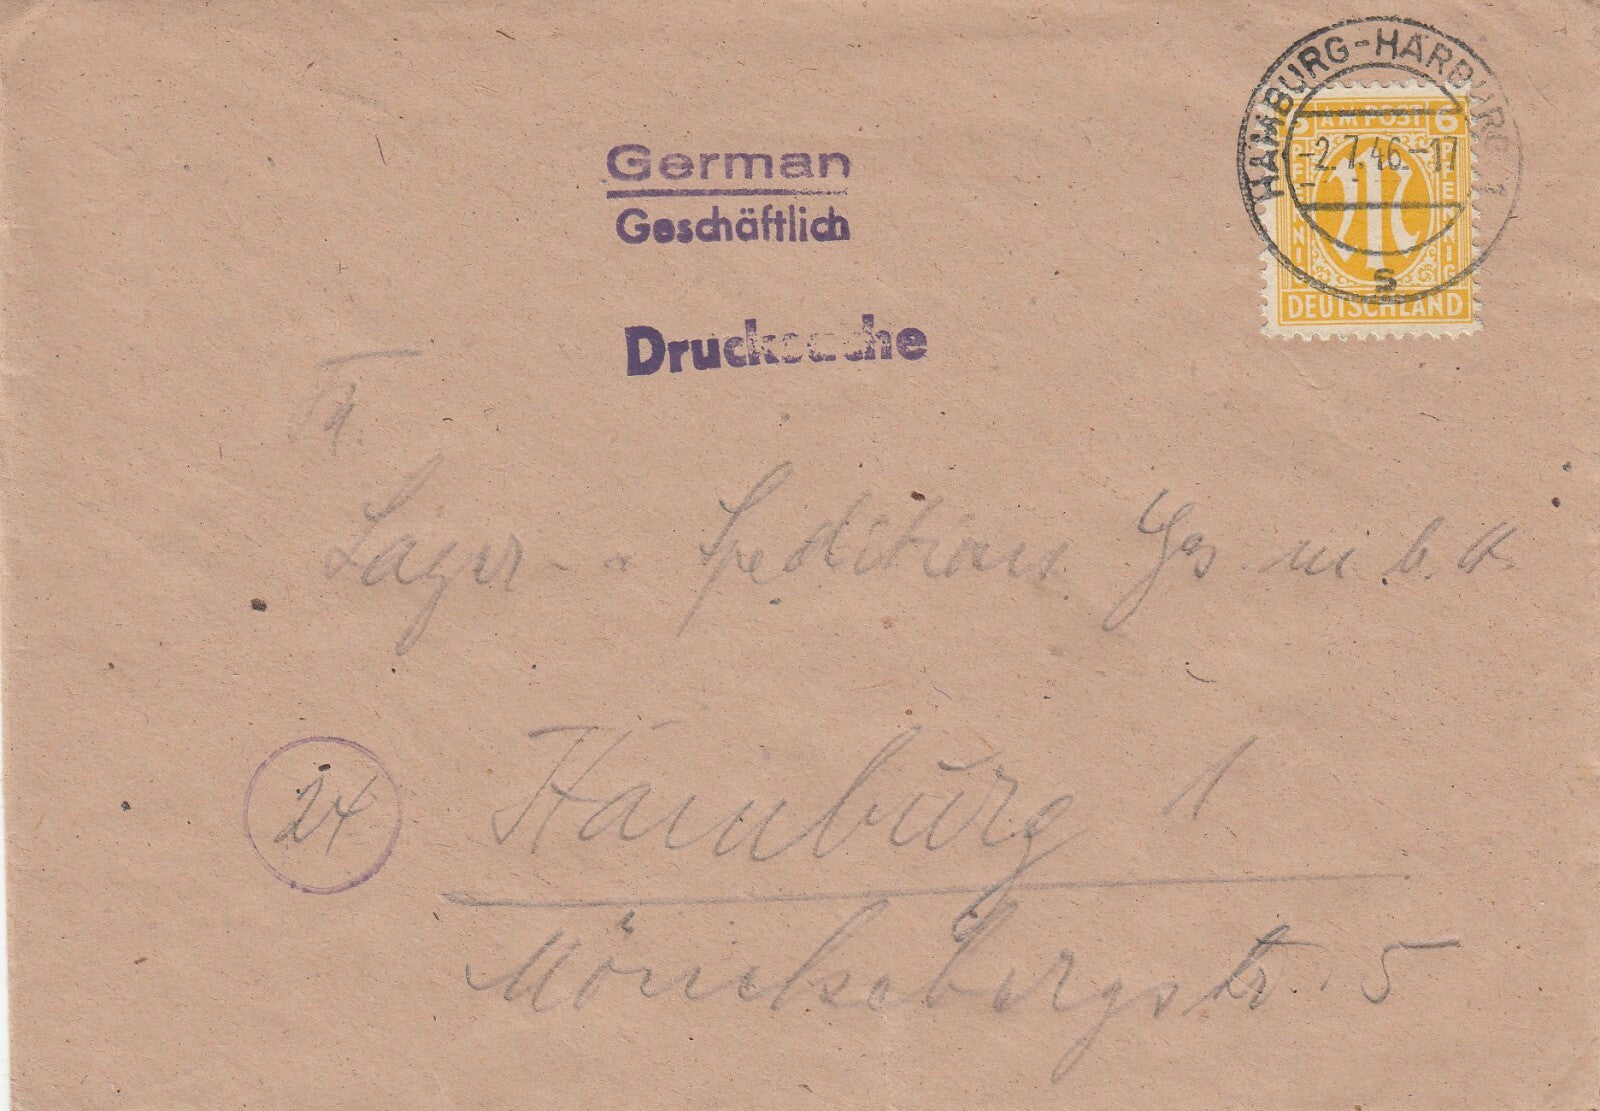 HAMBURG-HARBURG 1
-2.7.46.-17
s
6 AM POST 6
PFENNIG PFENNIG
DEUTSCHLAND
German
Geschäftlich
Drucksache
Fa.
Lager- u Speditions Ges. m. b. H.
24
Hamburg 1
Mönckebergstr. 5